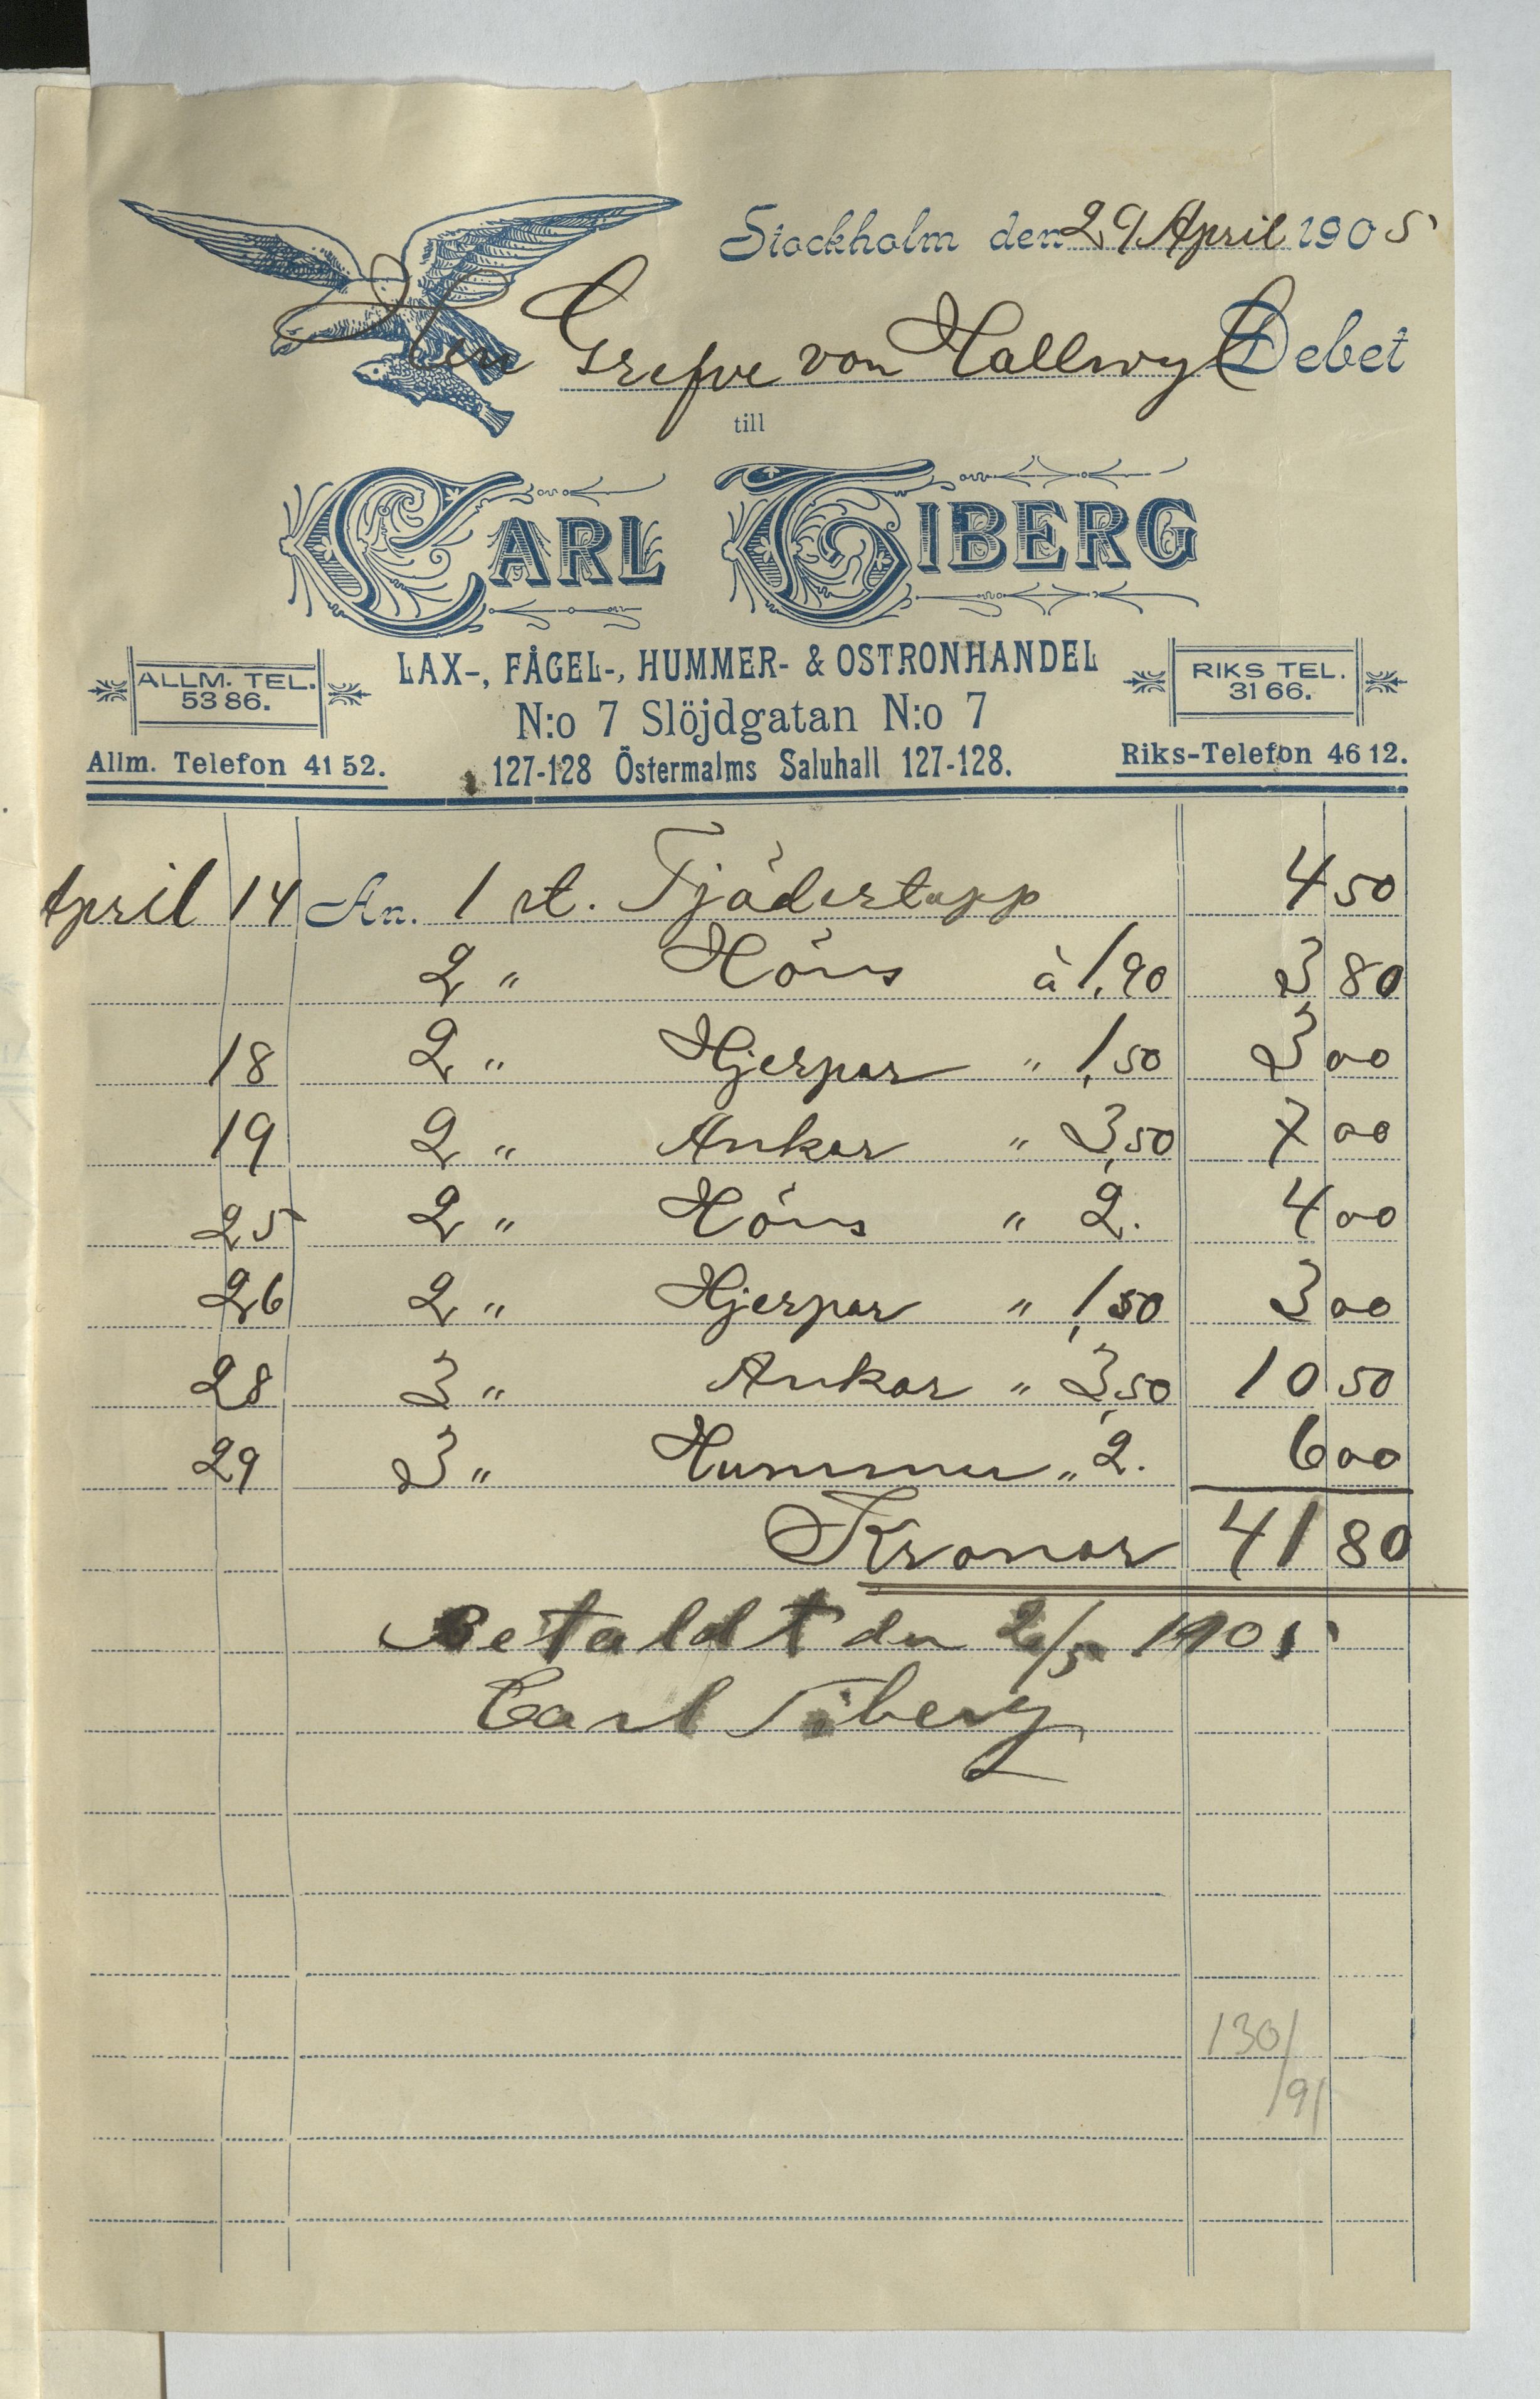 Stockholm den 29 April 1905
Herr Grefve von Hallwyl Debet
till
CARL TIBERG
LAX-, FÅGEL-, HUMMER- & OSTRONHANDEL
ALLM. TEL. 5386.
RIKS TEL. 3166.
N:o 7 Slöjdgatan N:o 7
Allm. Telefon 4152.
127-128 Östermalms Saluhall 127-128.
Riks-Telefon 4612.
April 14 An. 1 st. Tjädertupp 4 50
2 " Höns à 1,90 3 80
18 2 " Hjerpar " 1,50 3 00
19 2 " Ankor " 3,50 7 00
25 2 " Höns " 2. 4 00
26 2 " Hjerpar " 1,50 3 00
28 3 " Ankor " 3,50 10 50
29 3 " Hummer " 2. 6 00
Kronor 41 80
Betaldt den 2/5 1905
Carl Tiberg
130/
/91